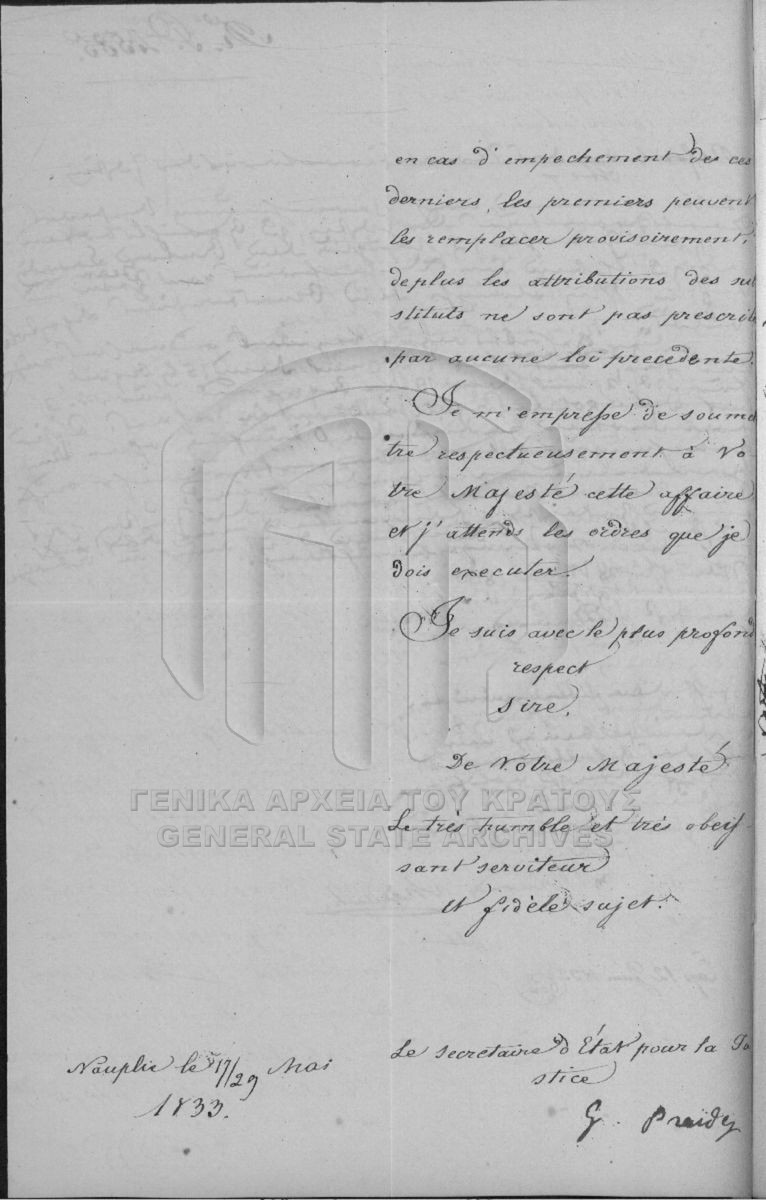 en cas d'empechement des ces
derniers, les premiers peuvent
les remplacer provisoirement,
deplus les attributions des su
stituts ne sont pas prescrit
par aucune loi precedente.
Je m'empresse de soumet
tre respectueusement à Vo
tre Majesté cette affaire
et j'attends les ordres que je
dois executer.
Je suis avec le plus profond
respect
Sire,
De Votre Majesté
ΓΕΝΙΚΑ ΑΡΧΕΙΑ ΤΟΥ ΚΡΑΤΟΥΣ
Le très humble et très obeis
GENERAL STATE ARCHIVES
sant serviteur
et fidèle sujet.
Le Secretaire d'État pour la Ju
stice
Nauplie le 17/29 Mai
1833.
G. Praidy